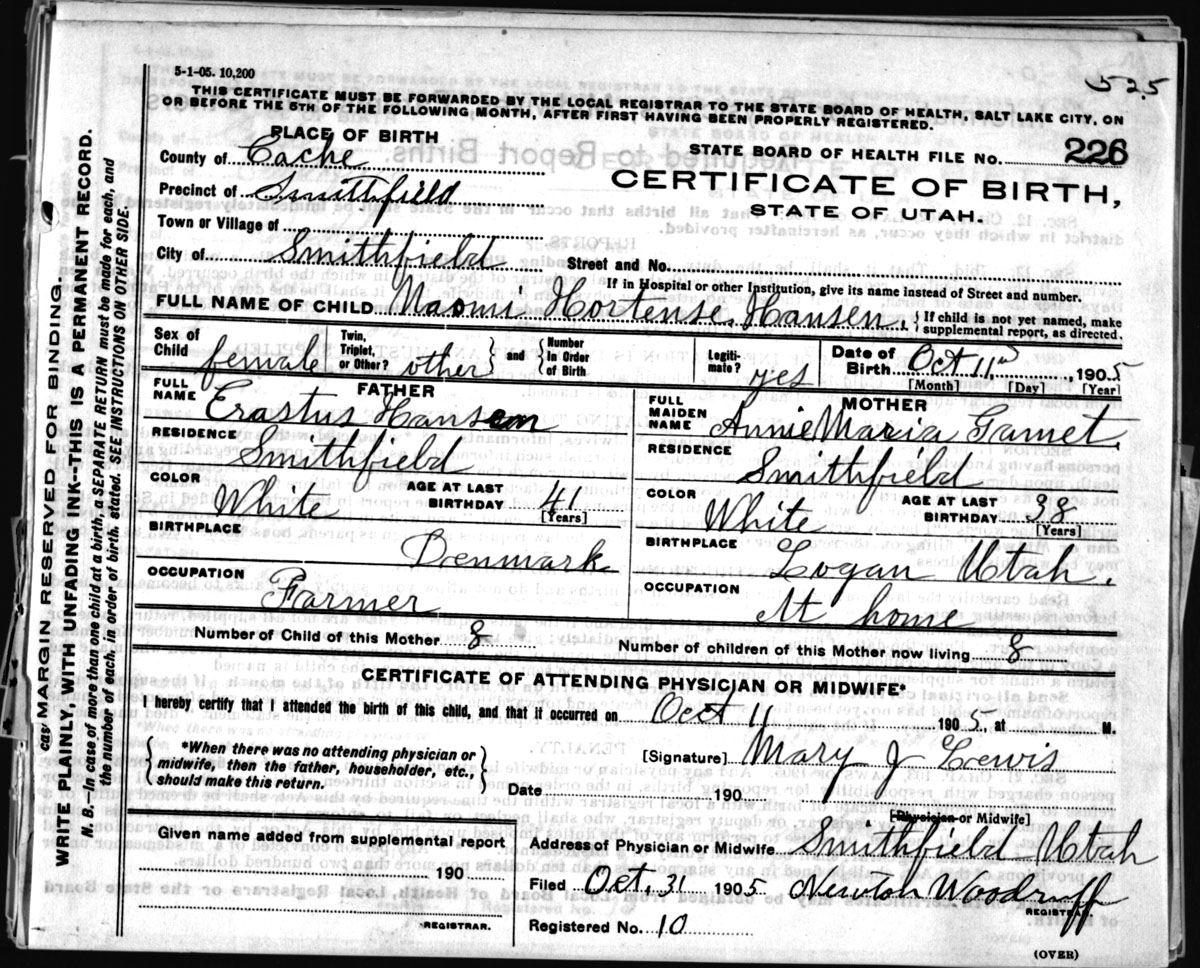 5-1-05. 10,200
525
THIS CERTIFICATE MUST BE FORWARDED BY THE LOCAL REGISTRAR TO THE STATE BOARD OF HEALTH, SALT LAKE CITY, ON
OR BEFORE THE 5TH OF THE FOLLOWING MONTH, AFTER FIRST HAVING BEEN PROPERLY REGISTERED.
PLACE OF BIRTH
STATE BOARD OF HEALTH FILE No. 226
County of Cache
CERTIFICATE OF BIRTH,
Precinct of Smithfield
STATE OF UTAH.
Town or Village of
City of Smithfield Street and No.
If in Hospital or other Institution, give its name instead of Street and number.
FULL NAME OF CHILD Naomi Hortense Hansen. } If child is not yet named, make
supplemental report, as directed.
Sex of Child female Twin, Triplet, or Other? other } and { Number in Order of Birth Legiti-mate? yes Date of Birth Oct 11, 1905
[Month] [Day] [Year]
FATHER
FULL NAME Erastus Hansen
RESIDENCE Smithfield
COLOR White AGE AT LAST BIRTHDAY 41
[Years]
BIRTHPLACE Denmark
OCCUPATION Farmer
MOTHER
FULL MAIDEN NAME Annie Maria Garnet.
RESIDENCE Smithfield
COLOR White AGE AT LAST BIRTHDAY 38
[Years]
BIRTHPLACE Logan Utah.
OCCUPATION At home
Number of Child of this Mother 8 Number of children of this Mother now living 8
CERTIFICATE OF ATTENDING PHYSICIAN OR MIDWIFE*
I hereby certify that I attended the birth of this child, and that it occurred on Oct 11 1905 at M.
{ *When there was no attending physician or
midwife, then the father, householder, etc.,
should make this return. }
[Signature] Mary J Lewis
Date 190
[Physician or Midwife]
Given name added from supplemental report
190
REGISTRAR.
Address of Physician or Midwife Smithfield Utah
Filed Oct. 31 1905 Newton Woodruff
REGISTRAR.
Registered No. 10
(OVER)
cas MARGIN RESERVED FOR BINDING.
WRITE PLAINLY, WITH UNFADING INK--THIS IS A PERMANENT RECORD.
N. B.—In case of more than one child at a birth, a SEPARATE RETURN must be made for each, and
the number of each, in order of birth, stated. SEE INSTRUCTIONS ON OTHER SIDE.